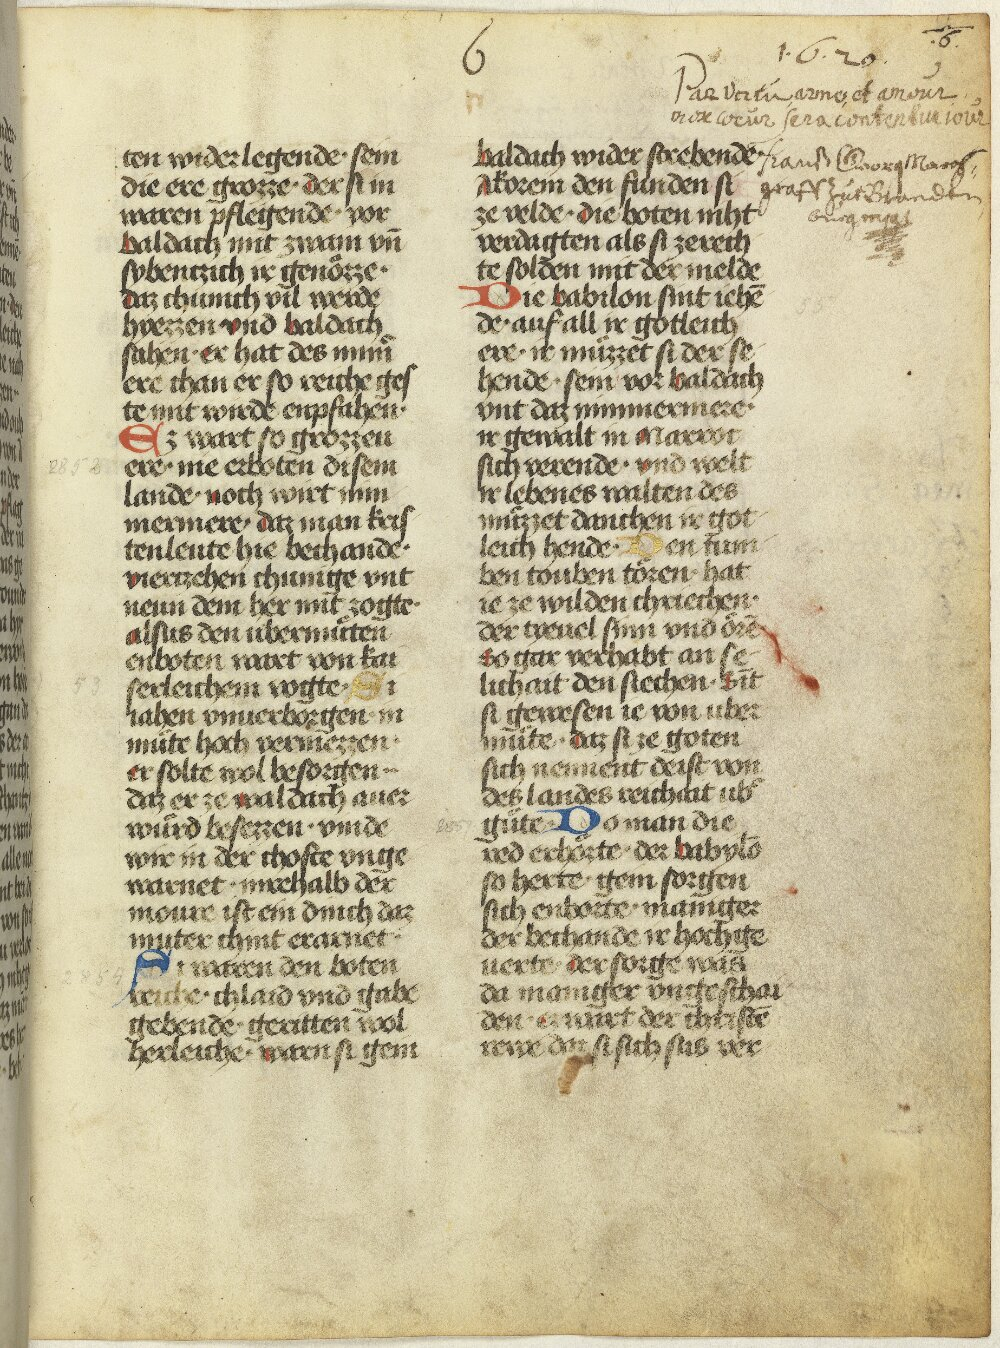 6
6.
1.6.20.
Par Vertu, arme, et amour
mon coeur sera content un iour
Frantz Georg Marg=
graff Zue Branden
burg mppa
ten wider legende · sein
die ere grozze · der si in
waren pflegende · vor
baldach mit zwain vn̄
sybentzich ir genözze ·
daz chunich vil werde
hiezzen · vnd baldach
sahen · er hat des minn̄
ere than er so reiche ges
te mit wirde enpfahen ·
Ez wart so grozzeu
ere · nie erboten disem
lande · noch wirt nim
mermere · daz man kris
tenleute hie bechande ·
viertzehen chunige vnt
neun dem her mit zogte ·
alsus den vbermůten
enboten wart von kai
serleichem vogte · Si
iahen vnuerborgen · in
můte hoch vermezzen ·
er solte wol besorgen ·
daz er ze waldach auer
wůrd besezzen · vnde
wir in der choste vnge
warnet · inrehalb der
moure ist ein dinch daz
muter chint erarnet ·
Si waren den boten
reiche · chlaid vnd gabe
gebende · geritten wol
herleiche · warn si gem
baldach wider strebende ·
Akorem den funden si
ze velde · die boten niht
verdagten als si ze rech
te solden mit der melde
Die babilon sint iehē
de · auf all ir gotleich
ere · ir můzzet si der se
hende · sein vor baldach
vnt daz nimmermere ·
ir gewalt in Marroc
sich verende · vnd welt
ir lebenes walten des
můzzet danchen ir got
leich hende · Den tum
ben touben tören · hat
ie ze wilden chriechen ·
der tyeuel sinn vnd örē
so gar verhabt an se
lichait den siechen · Sit
si gewesen ie von uber
můte · daz si ze goten
sich nennent deist von
des landes reichait ubͤ
gůte · Do man die
red erhörte · der babylō
so herte · gein sorgen
sich enborte · maniger
der bechande ir hochge
uerte · der sorge was
da maniger vngeschai
den · er můrt der christē
rewe daz si sich sus ver